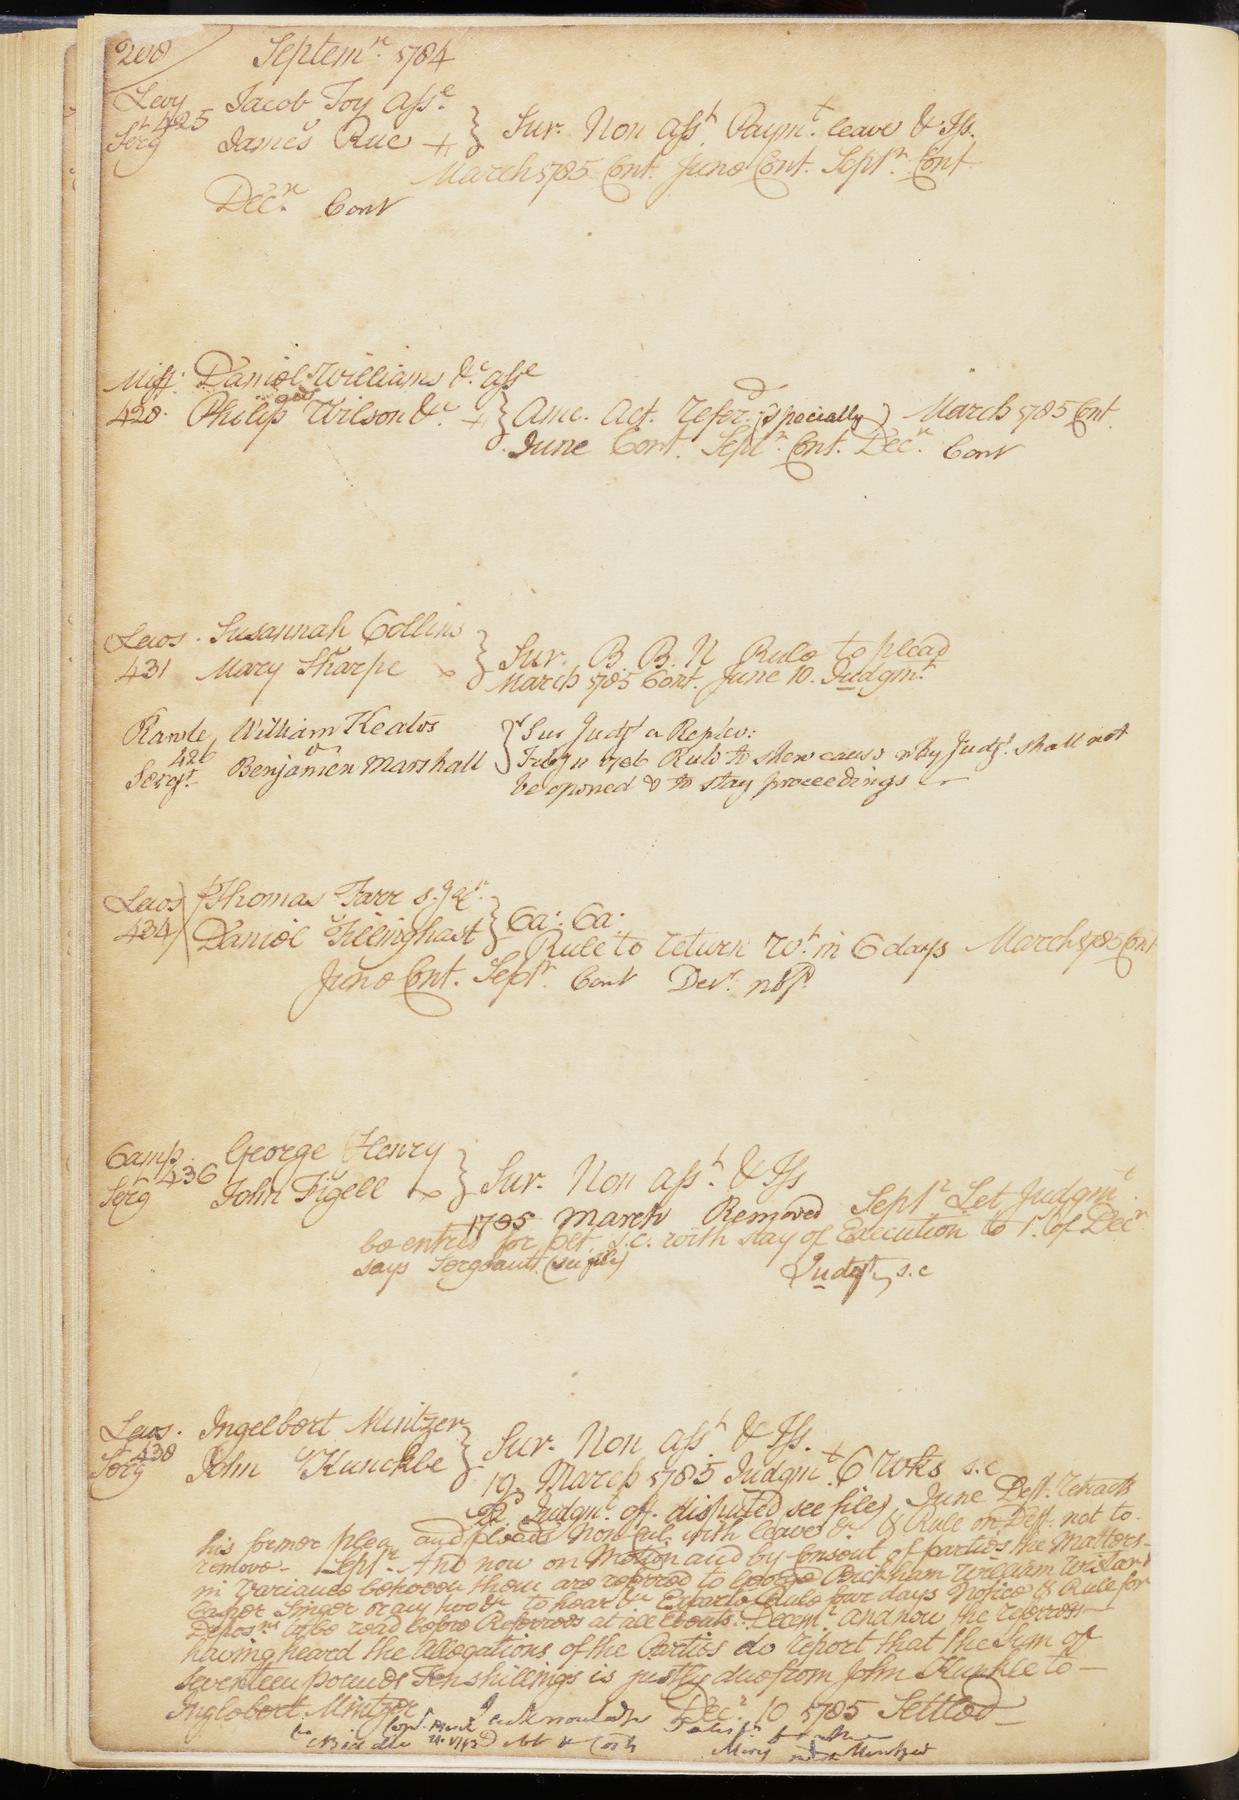 208 Septemr. 1784
Levy Jacob Toy Asse.
425
Sergt James Rue + } Sur. Non Asst. Paymt. leave & Iss.
March 1785 Cont. June Cont. Septr. Cont
Decr. Cont
Miff: Daniel Williams &c. asse
428. Philip Wilson &c. + } Ame. Act. Refer. (Specially) March 1785 Cont.
June Cont. Septr. Cont. Decr. Cont
Lews. Susannah Collins
431 Mary Sharpe } Sur. B. B. N Rule to plead
March 1785 Cont. June 10. Judgmt.
Rawle William Keates } Sur Judgt. a Replev:
426
Sergt. Benjamen Marshall Feby 11 1786 Rule to shew cause why Judgt. shall not
be opened & to stay proceedings
Lews Thomas Farr
434 Daniel Tillinghast } Ca. Sa.
Rule to return wt. in 6 days March 1785 Cont
June Cont. Septr. Cont Decr.
Camp. George Henry
436
Serg John Figell } Sur. Non asst. & Iss
1785 March Removed Septr. Let Judgmt.
be entred for plt. s.c. with stay of Execution to 1st. of Decr.
says Sergeant (see file) Judgt. s.c
Lews. Ingelbert Mintzer
438
Sergt John Kunckle } Sur. Non asst. & Iss.
19. March 1785 Judgmt. 6 Wks s.c
22d. Judgmt. off. disputed see file) June Deft. retracts
his former plea and pleads Non cul. with leave &c & Rule on Deft. not to
remove. Septr. And now on Motion and by Consent of parties the Matters
in Variance between them are referred to George Bickham William Wistar
Casper Singer or any two &c to hear &c Exparte Rule four days Notice & Rule for
Deposns. to be read before Referrees at all Events. Decemr. and now the referrees
having heard the Allegations of the Parties do report that the Sum of
Seventeen pounds Ten shillings is justly due from John Kunkle to
Inglebert Mintzer Decr. 10 1785 Settled
I acknowledge
debt & Costs Mintzer